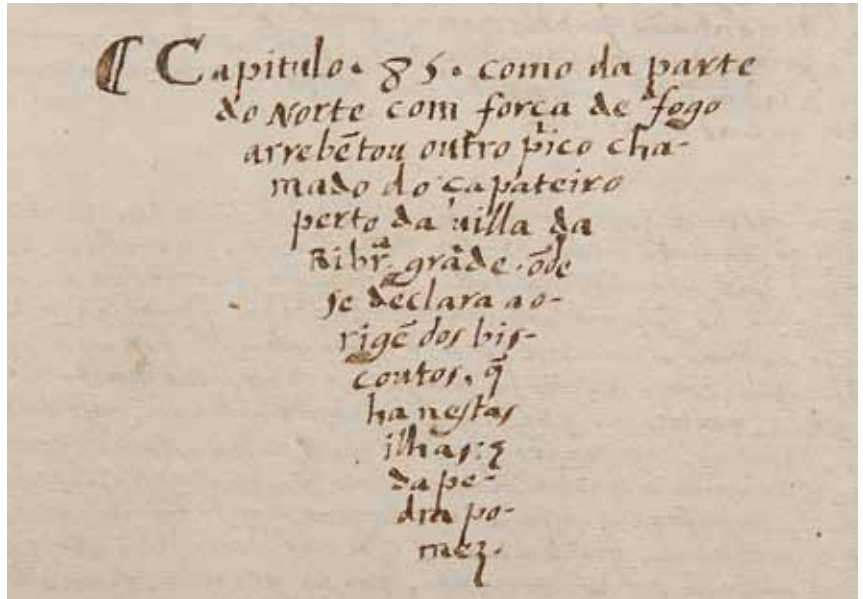 ¶ Capitulo. 85. como da parte
do Norte com força de fogo
arrebẽtou outro pico cha-
mado do çapateiro
perto da uilla da
Ribrª. grãde. õde
se declara ao-
rigẽ dos bis-
coutos. q̃
ha nestas
ilhas: ⁊
da pe-
dra po-
mez.